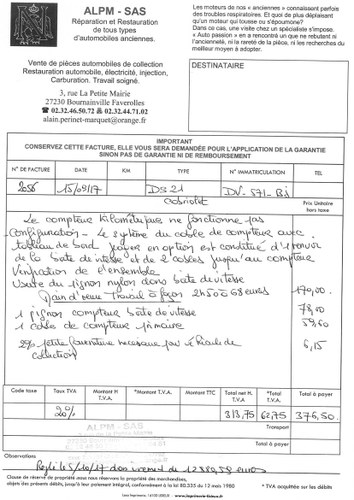 ALPM - SAS
Réparation et Restauration
de tous types
d'automobiles anciennes.
Vente de pièces automobiles de collection
Restauration automobile, électricité, injection,
Carburation. Travail soigné.
3, rue La Petite Mairie
27230 Bournainville Faverolles
02.32.46.50.72 02.32.44.71.02
alain.perinet-marquet@orange.fr
Les moteurs de nos « anciennes » connaissent parfois
des troubles respiratoires. Et quoi de plus déplaisant
qu'un moteur qui tousse ou s'époumone?
Dans ce cas, une visite chez un spécialiste s'impose.
« Auto passion » en a rencontré un que ne rebutent ni
l'ancienneté, ni la rareté de la pièce, ni les recherches du
meilleur moyen à adopter.
DESTINATAIRE
IMPORTANT
CONSERVEZ CETTE FACTURE, ELLE VOUS SERA DEMANDÉE POUR L'APPLICATION DE LA GARANTIE
SINON PAS DE GARANTIE NI DE REMBOURSEMENT
N° DE FACTURE DATE KM TYPE N° IMMATRICULATION TEL
2056 15/09/17 DS 21 DV-571-BJ
cabriolet
Prix Unitaire
hors taxe
Total à payer
Le compteur kilométrique ne fonctionne pas
Configuration - Le système du cable de compteur avec
tableau de bord Jaeger en option est constitué d'1 renvoi
de la boite de vitesse et de 2 cables jusqu'au compteur
Vérification de l'ensemble
Usure du pignon nylon dans boite de vitesse
Main d'œuvre Travail à façon 2h50 à 68 euros 170,00
1 pignon compteur boite de vitesse 78,00
1 cable de compteur primaire 59,60
2% petite fourniture nécessaire par véhicule de 6,15
collection
Code taxe Taux TVA Montant H T.V.A. *Montant T.V.A. Montant TTC Total net H. T.V.A. *Total T.V.A. Total à payer
20% 313,75 62,75 376,50
ALPM - SAS
Transport
Total à payer
Observations
Réglé le 5/10/17 dans virement de 12889,59 euros
Clause de réserve de propriété sous nous réservons la propriété des marchandises,
objets des présents débits, jusqu'à leur paiement intégral, conformément à la loi 80.335 du 12 mais 1980
* TVA acquittée sur les débits